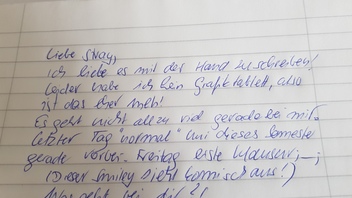 Liebe Sway,
ich liebe es mit der Hand zu schreiben!
Leider habe ich kein Grafiktablett, also
ist das eher meh!
Es geht nicht allzu viel gerade bei mir.
Letzter Tag "normal" Uni dieses Semester
gerade vorbei. Freitag erste Klausur ;_;
(Dieser Smiley sieht komisch aus!)
Was geht bei dir?!